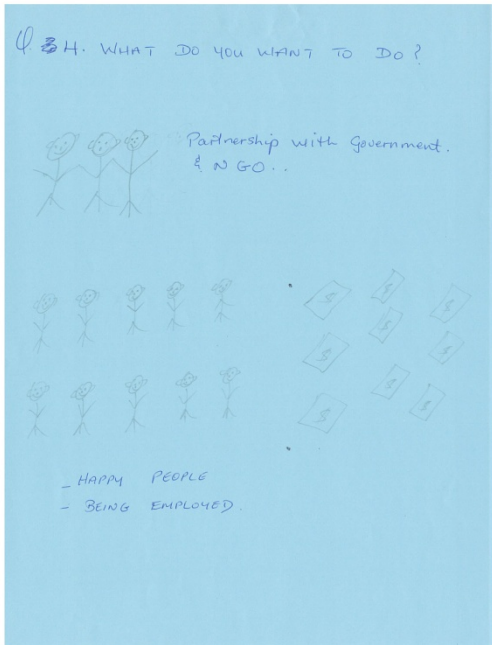 Q. 4. WHAT DO YOU WANT TO DO?
Partnership with Government.
& NGO..
$ $ $
$
$ $
$ $
$
- HAPPY PEOPLE
- BEING EMPLOYED.